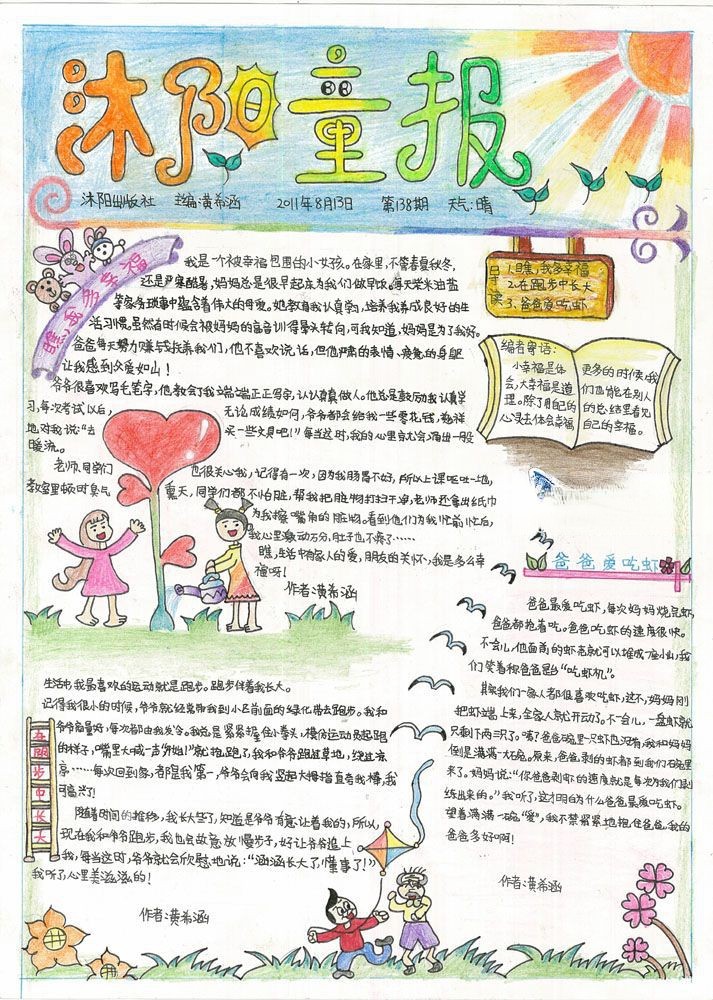 沐阳童报
沐阳出版社 主编:黄希涵 2011年8月13日 第138期 天气:晴
瞧,我多幸福
我是一个被幸福包围的小女孩。在家里,不管春夏秋冬,
还是严寒酷暑,妈妈总是很早起来为我们做早饭。每天柴米油盐
等家务琐事中蕴含着伟大的母爱。她教育我认真学习,培养我养成良好的生
活习惯。虽然有时候会被妈妈的高音训得晕头转向,可我知道,妈妈是为了我好。
爸爸每天努力赚钱抚养我们,他不喜欢说话,但他严肃的表情、疲惫的身躯
让我感到父爱如山!
爷爷很喜欢写毛笔字,他教会了我端端正正写字,认认真真做人。他总是鼓励我认真学
习,每次考试以后,无论成绩如何,爷爷都会给我一些零花钱,慈祥
地对我说:“去买一些文具吧!”每当这时,我的心里就会涌出一股
暖流。
老师、同学们也很关心我,记得有一次,因为我肠胃不好,所以上课呕吐一地,
教室里顿时臭气熏天,同学们都不怕脏,帮我把脏物打扫干净,老师还拿出纸巾
为我擦嘴角的脏物。看到他们为我忙前忙后,
我心里激动万分,肚子也不疼了……
瞧,生活中有家人的爱,朋友的关怀,我是多么幸
福呀!
作者:黄希涵
目录
1.瞧,我多幸福
2.在跑步中长大
3.爸爸爱吃虾
编者寄语:
小幸福是体
会,大幸福是道
理。除了用自己的
心灵去体会幸福
更多的时候,我
们也能在别人
的总结里看见
自己的幸福。
爸爸爱吃虾
爸爸最爱吃虾,每次妈妈烧完虾,
爸爸都抢着吃。爸爸吃虾的速度很快。
不一会儿,他面前的虾壳就可以堆成一座小山,我
们笑着称爸爸是“吃虾机”。
其实我们一家人都很喜欢吃虾,这不,妈妈刚
把虾端上来,全家人就开动了。不一会儿,一盘虾就
只剩下两三只了。咦?爸爸碗里一只虾也没有,我和妈妈
倒是满满一大碗。原来,爸爸剥的虾都到我们碗里
来了。妈妈说:“你爸爸剥虾的速度就是每次为我们剥
练出来的。”我听了,这才明白为什么爸爸最爱吃虾。
望着满满一碗“爱”,我不禁紧紧地抱住爸爸,我的
爸爸多好啊!
作者:黄希涵
在跑步中长大
生活中,我最喜欢的运动就是跑步。跑步伴着我长大。
记得我很小的时候,爷爷就经常带我到小区前面的绿化带去跑步。我和
爷爷商量好,每次都由我发令。我总是紧紧握住小拳头,模仿运动员起跑
的样子,嘴里大喊一声“开始!”就抢跑了,我和爷爷跑过草地,绕过凉
亭……每次回到家,都是我第一,爷爷会向我竖起大拇指直夸我棒,我
可高兴了!
随着时间的推移,我长大些了,知道是爷爷有意让着我的,所以,
现在我和爷爷跑步,我也会故意放慢步子,好让爷爷追上
我,每当这时,爷爷就会欣慰地说:“涵涵长大了!懂事了!”
我听了心里美滋滋的!
作者:黄希涵